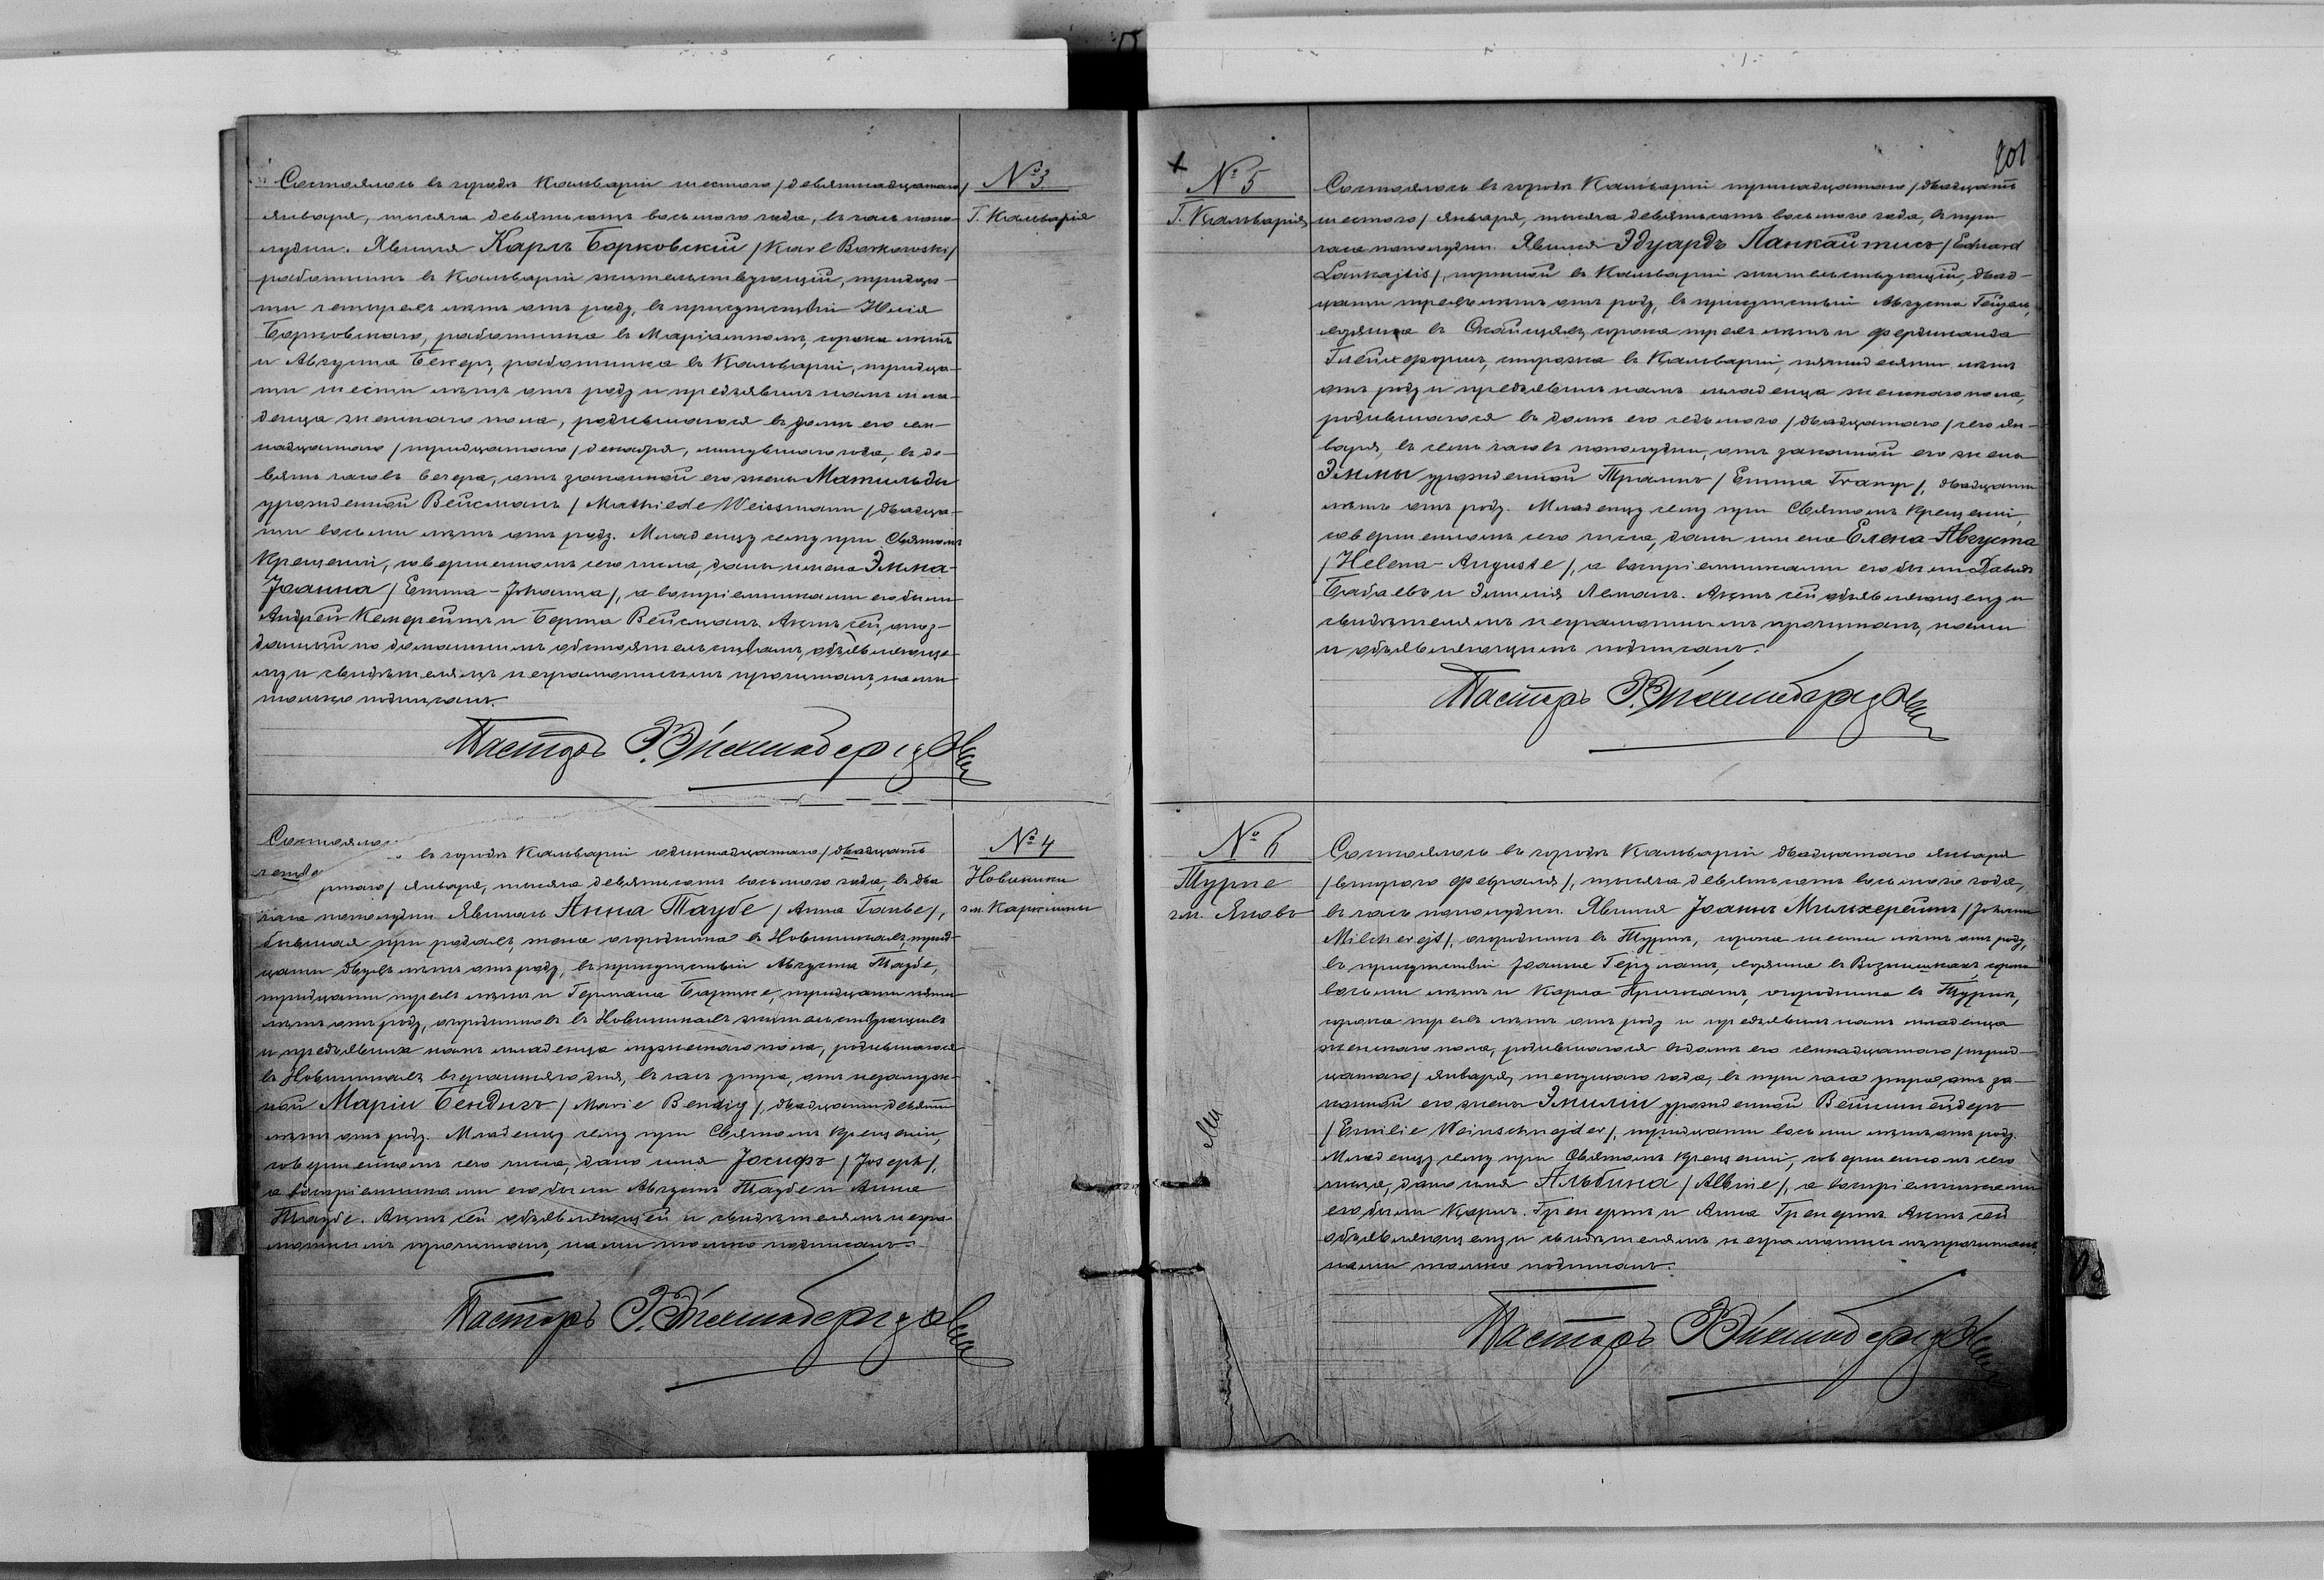 № 3
Г. Кальварія
Состоялось въ городѣ Кальваріи шестого /девятнадцатаго/
января, тысяча девятьсотъ восьмого года, въ часъ попо-
лудни. Явился Карлъ Борковскій /Karl Borkowski/
работникъ въ Кальваріи жительствующій, тридца-
ти четырехъ лѣтъ отъ роду, въ присутствіи Юлія
Борковскаго, работника въ Маріамполѣ, сорока лѣтъ
и Августа Бекеръ, работника въ Кальваріи, тридца-
ти шести лѣтъ отъ роду и предъявилъ намъ мла-
денца женскаго пола, родившагося въ домѣ его сем-
надцатаго /тридцатаго/ декабря, минувшаго года, въ де-
вять часовъ вечера, отъ законной его жены Матильды
урожденной Вейсманъ /Mathilde Weissmann/ двадца-
ти восьми лѣтъ отъ роду. Младенцу сему при Святомъ
Крещеніи, совершенномъ сего числа, даны имена Эмма-
Іоанна /Emma-Johanna/, а воспріемниками его были
Андрей и Берта Вейсманъ. Актъ сей, опоз-
данный по домашнимъ обстоятельствамъ, объявляюще-
му и свидѣтелямъ неграмотнымъ прочитанъ, нами
только подписанъ.
Пасторъ
№ 4
Новиники
гм. Каролины
Состоялось въ городѣ Кальваріи одиннадцатаго /двадцать
четвертаго/ января, тысяча девятьсотъ восьмого года, въ два
часа пополудни. Явилась Анна Таубе /Anna Taube/,
бывшая при родахъ, жена огородника въ Новиникахъ, трид-
цати двухъ лѣтъ отъ роду, въ присутствіи Августа Таубе,
тридцати трехъ лѣтъ и Германа тридцати пяти
лѣтъ отъ роду, огородниковъ въ Новиникахъ жительствующихъ
и предъявила намъ младенца мужескаго пола, родившагося
въ Новиникахъ вчерашняго дня, въ часъ утра, отъ незамуж-
ной Маріи Бендигъ /Marie Bendig/, двадцати девяти
лѣтъ отъ роду. Младенцу сему при Святомъ Крещеніи,
совершенномъ сего числа, дано имя Іосифъ /Joseph/,
а воспріемниками его были Августъ Таубе и Анна
Таубе. Актъ сей объявляющей и свидѣтелямъ негра-
мотнымъ прочитанъ, нами только подписанъ.
Пасторъ
201
№ 5
Г. Кальварія
Состоялось въ городѣ Кальваріи тринадцатаго /двадцать
шестого/ января, тысяча девятьсотъ восьмого года, въ три
часа пополудни. Явился Эдуардъ Ланкайтисъ /Eduard
Lankajtis/, портной въ Кальваріи жительствующій, двад-
цати трехъ лѣтъ отъ роду, въ присутствіи Августа
хозяина въ сорока трехъ лѣтъ и Фердинанда
сторожа въ Кальваріи, пятидесяти лѣтъ
отъ роду и предъявилъ намъ младенца женскаго пола,
родившагося въ домѣ его седьмого /двадцатаго/ сего ян-
варя, въ семь часовъ пополудни, отъ законной его жены
Эммы урожденной Трампъ /Emma Tramp/, двадцати
лѣтъ отъ роду. Младенцу сему при Святомъ Крещеніи,
совершенномъ сего числа, даны имена Елена-Августа
/Helena-Auguste/, а воспріемниками его были Давидъ
Бабаевъ и Эмилія Леманъ. Актъ сей объявляющему и
свидѣтелямъ неграмотнымъ прочитанъ, нами
и объявляющимъ подписанъ.
Пасторъ
№ 6
Турне
гм. Яновъ
Состоялось въ городѣ Кальваріи двадцатаго января
/второго февраля/, тысяча девятьсотъ восьмого года,
въ часъ пополудни. Явился Іоаннъ Мильхерейтъ /Johann
Milcherejt/, огородникъ въ Турнѣ, сорока шести лѣтъ отъ роду,
въ присутствіи Іоанна хозяина въ сорока
восьми лѣтъ и Карла огородника въ Турнѣ,
сорока трехъ лѣтъ отъ роду и предъявилъ намъ младенца
женскаго пола, родившагося въ домѣ его семнадцатаго /трид-
цатаго/ января, текущаго года, въ три часа утра, отъ за-
конной его жены Эмиліи урожденной Вейншнейдеръ
/Emilie Weinschnejder/, тридцати восьми лѣтъ отъ роду.
Младенцу сему при Святомъ Крещеніи, совершенномъ сего
числа, дано имя Альбина /Albine/, а воспріемниками
его были Карлъ и Анна Актъ сей
объявляющему и свидѣтелямъ неграмотнымъ прочитанъ,
нами только подписанъ.
Пасторъ